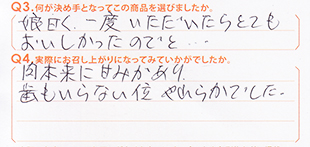 Q3.何が決め手となってこの商品を選びましたか。
娘曰く、一度いただいたらとても
おいしかったのでと…
Q4.実際にお召し上がりになってみていかがでしたか。
肉本来に甘みがあり、
歯もいらない位 やわらかでした。